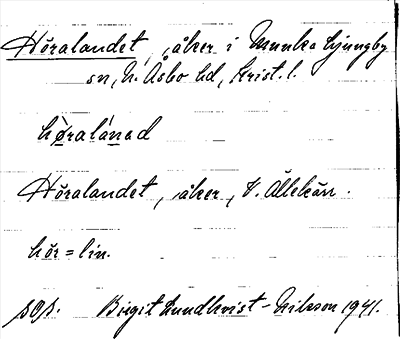 Höralandet, åker i Munka Ljungby
sn, N. Åsbo hd, Krist. l.
hø̀ralánəd
Höralandet, åker, V. Ällekärr.
hör = lin.
sOs. Birgit Lundkvist-Nilsson 1941.